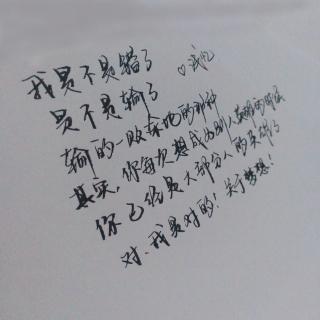 我是不是错了
是不是输了
输的一败涂地的那种
其实,你每次想成为别人
你已经是大部分人的
对、我是对的!关于梦想!